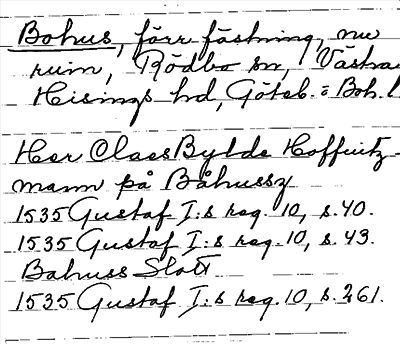 Bohus, förr fästning, nu
ruin, Rödbo sn, Västra
Hisings hd, Göteb. o Boh. l
Her Claes Bylde Hoffuitz-
mann på Båhussz
1535 Gustaf I:s reg. 10, s. 40.
1535 Gustaf I:s reg. 10, s. 43.
Bahuss Slott
1535 Gustaf I:s reg. 10, s. 261.